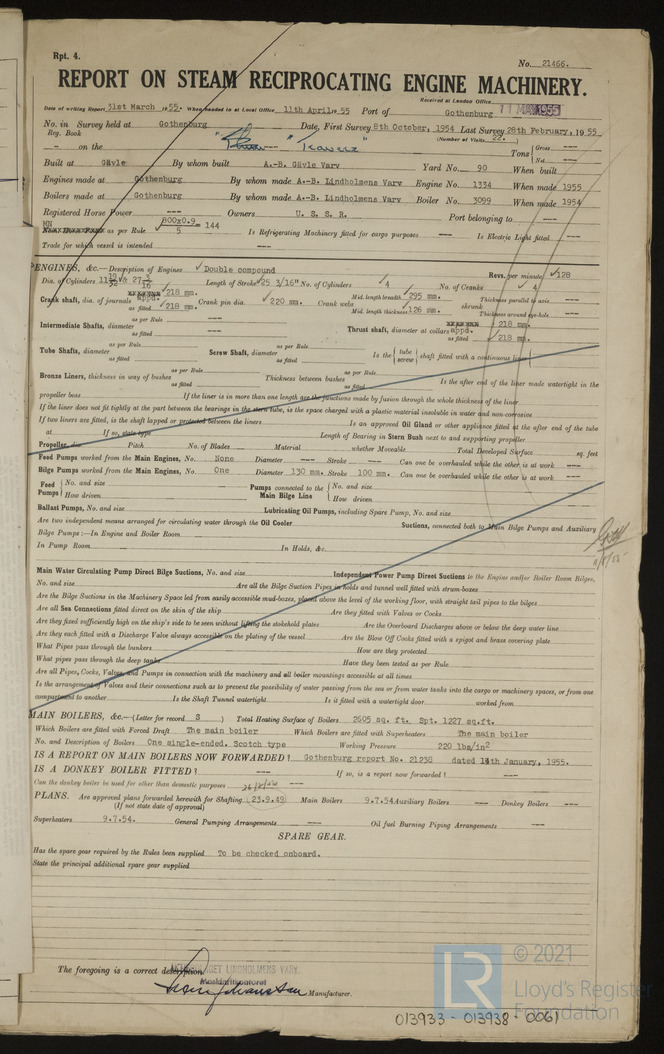 Rpt. 4.
No. 21466.
REPORT ON STEAM RECIPROCATING ENGINE MACHINERY.
Received at London Office 11 MAY 1955
Date of writing Report 31st March 1955. When handed in at Local Office 11th April, 1955 Port of Gothenburg
No. in Survey held at Gothenburg Date, First Survey 8th October, 1954 Last Survey 28th February, 1955
Reg. Book (Number of Visits 22.)
- on the Tons { Gross —
Net —
Built at Gävle By whom built A.-B. Gävle Varv Yard No. 90 When built
Engines made at Gothenburg By whom made A.-B. Lindholmens Varv Engine No. 1334 When made 1955
Boilers made at Gothenburg By whom made A.-B. Lindholmens Varv Boiler No. 3099 When made 1954
Registered Horse Power --- Owners U. S. S. R. Port belonging to ---
MN as per Rule 800x0.9 / 5 = 144 Is Refrigerating Machinery fitted for cargo purposes --- Is Electric Light fitted ---
Trade for which vessel is intended ---
ENGINES, &c.—Description of Engines Double compound Revs. per minute 128
Dia. of Cylinders 11 & 27 3/16 Length of Stroke 25 3/16" No. of Cylinders 4 No. of Cranks 4
Crank shaft, dia. of journals appd. 218 mm. as fitted 218 mm. Crank pin dia. 220 mm. Crank webs Mid. length breadth 295 mm. Mid. length thickness 126 mm. shrunk Thickness parallel to axis --- Thickness around eye-hole ---
Intermediate Shafts, diameter as per Rule --- as fitted --- Thrust shaft, diameter at collars appd. 218 mm. as fitted 218 mm.
Tube Shafts, diameter as per Rule as fitted Screw Shaft, diameter as per Rule as fitted Is the { tube screw } shaft fitted with a continuous liner
Bronze Liners, thickness in way of bushes as per Rule as fitted Thickness between bushes as per Rule as fitted Is the after end of the liner made watertight in the
propeller boss If the liner is in more than one length are the junctions made by fusion through the whole thickness of the liner
If the liner does not fit tightly at the part between the bearings in the stern tube, is the space charged with a plastic material insoluble in water and non-corrosive
If two liners are fitted, is the shaft lapped or protected between the liners Is an approved Oil Gland or other appliance fitted at the after end of the tube
at If so, state type Length of Bearing in Stern Bush next to and supporting propeller
Propeller, dia. Pitch No. of Blades Material whether Moveable Total Developed Surface sq. feet
Feed Pumps worked from the Main Engines, No. None Diameter --- Stroke --- Can one be overhauled while the other is at work ---
Bilge Pumps worked from the Main Engines, No. One Diameter 130 mm. Stroke 100 mm. Can one be overhauled while the other is at work ---
Feed Pumps { No. and size How driven Pumps connected to the Main Bilge Line { No. and size How driven
Ballast Pumps, No. and size Lubricating Oil Pumps, including Spare Pump, No. and size
Are two independent means arranged for circulating water through the Oil Cooler Suctions, connected both to Main Bilge Pumps and Auxiliary
Bilge Pumps:—In Engine and Boiler Room
In Pump Room In Holds, &c.
Main Water Circulating Pump Direct Bilge Suctions, No. and size Independent Power Pump Direct Suctions to the Engine and/or Boiler Room Bilges,
No. and size Are all the Bilge Suction Pipes in holds and tunnel well fitted with strum-boxes
Are the Bilge Suctions in the Machinery Space led from easily accessible mud-boxes, placed above the level of the working floor, with straight tail pipes to the bilges
Are all Sea Connections fitted direct on the skin of the ship Are they fitted with Valves or Cocks
Are they fixed sufficiently high on the ship's side to be seen without lifting the stokehold plates Are the Overboard Discharges above or below the deep water line
Are they each fitted with a Discharge Valve always accessible on the plating of the vessel Are the Blow Off Cocks fitted with a spigot and brass covering plate
What Pipes pass through the bunkers How are they protected
What pipes pass through the deep tanks Have they been tested as per Rule
Are all Pipes, Cocks, Valves, and Pumps in connection with the machinery and all boiler mountings accessible at all times
Is the arrangement of Valves and their connections such as to prevent the possibility of water passing from the sea or from water tanks into the cargo or machinery spaces, or from one
compartment to another Is the Shaft Tunnel watertight Is it fitted with a watertight door worked from
MAIN BOILERS, &c.—(Letter for record S ) Total Heating Surface of Boilers 2605 sq. ft. Spt. 1227 sq.ft.
Which Boilers are fitted with Forced Draft The main boiler Which Boilers are fitted with Superheaters The main boiler
No. and Description of Boilers One single-ended, Scotch type Working Pressure 220 lbs/in2
IS A REPORT ON MAIN BOILERS NOW FORWARDED? Gothenburg report No. 21238 dated 14th January, 1955.
IS A DONKEY BOILER FITTED? --- If so, is a report now forwarded? ---
Can the donkey boiler be used for other than domestic purposes ---
PLANS. Are approved plans forwarded herewith for Shafting (23.9.49) Main Boilers 9.7.54 Auxiliary Boilers --- Donkey Boilers ---
(If not state date of approval)
Superheaters 9.7.54. General Pumping Arrangements --- Oil fuel Burning Piping Arrangements ---
SPARE GEAR.
Has the spare gear required by the Rules been supplied To be checked onboard.
State the principal additional spare gear supplied
The foregoing is a correct description,
AKTIEBOLAGET LINDHOLMENS VARV
Maskinritkontoret
Manufacturer.
© 2021
LR
Lloyd's Register
Foundation
013933 - 013938 - 0061